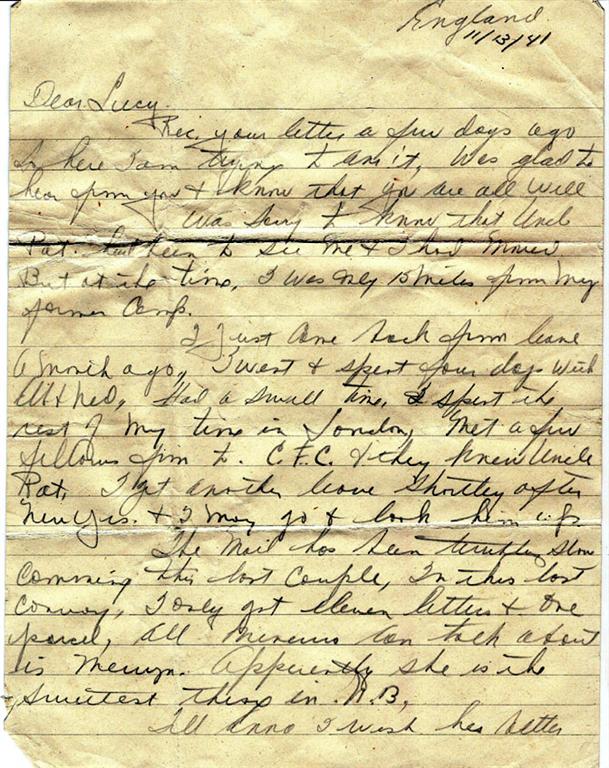 England
11/13/41
Dear Lucy
Rec. your letter a few days ago
So here I am trying to ans it, Was glad to
hear from you & know that you are all well
Was sorry to know that Uncl
Pat. had been to see me & I had moved
But at the time, I was only 15 miles from my
former Camp.
I just came back from leave
a month ago, I went & spent four days with
& Ned, Had a small time, I spent the
rest of my time in London, Met a few
fellows from C.F.C. & they knew Uncle
Pat, I get another leave shortley after
New Yrs. & I may go & look him up.
The Mail has been terribley slow
comming this last couple, In this last
convoy, I only got eleven letters & one
parcel, all can talk about
is Merlyn. Apparently she is the
smartest thing in N.B,
Tell Anna I wish her better